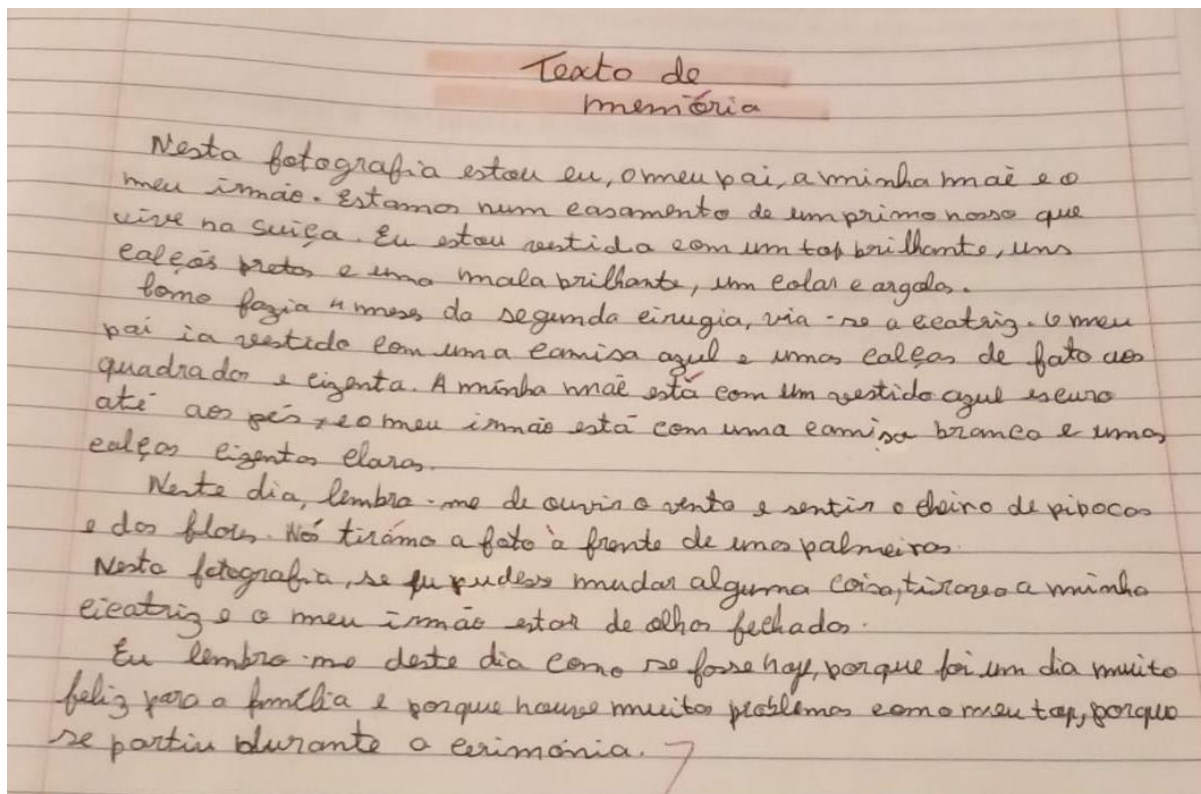 Texto de
memória
Nesta fotografia estou eu, o meu pai, a minha mãe e o
meu irmão. Estamos num casamento de um primo nosso que
vive na suiça. Eu estou vestida com um top brilhante, uns
calções pretos e uma mala brilhante, um colar e argolas.
Como fazia 4 meses da segunda cirugia, via-se a ceatriz. O meu
pai ia vestido com uma camisa azul e umas calças de fato aos
quadrados e cizenta. A minha mãe está com um vestido azul escuro
até aos pés, e o meu irmão está com uma camisa branca e umas
calças cizentas claras.
Neste dia, lembro-me de ouvir o vento e sentir o cheiro de pipocas
e das flores. Nós tirámos a foto à frente de umas palmeiras.
Nesta fotografia, se eu pudesse mudar alguma coisa, a minha
cicatriz e o meu irmão estar de olhos fechados.
Eu lembro-me deste dia como se fosse hoje, porque foi um dia muito
feliz para a família e porque houve muitos problemas com o meu top, porque
se partiu durante a cerimónia.